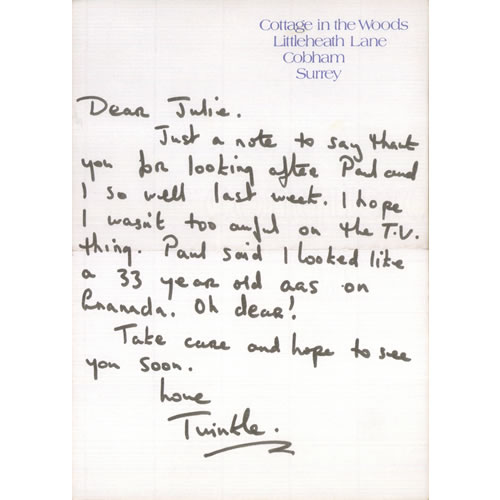 Cottage in the Woods
Littleheath Lane
Cobham
Surrey
Dear Julie.
Just a note to say thank
you for looking after Paul and
I so well last week. I hope
I wasn't too awful on the T.V.
thing. Paul said I looked like
a 33 year old on
Granada. Oh dear!
Take care and hope to see
you soon.
Love
Twinkle.